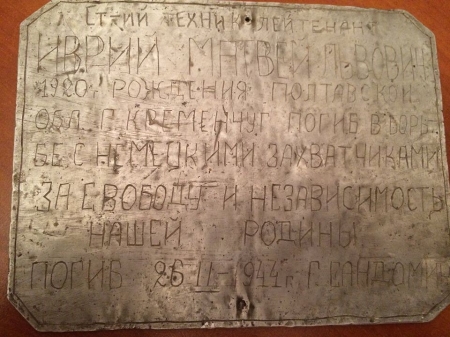 Ст-ший техник лейтенант
ИВРИЙ МАТВЕЙ ЛЬВОВИЧ
1920 РОЖДЕНИЯ ПОЛТАВСКОЙ
ОБЛ. Г. КРЕМЕНЧУГ ПОГИБ В БОРЬ
БЕ С НЕМЕЦКИМИ ЗАХВАТЧИКАМИ
ЗА СВОБОДУ И НЕЗАВИСИМОСТЬ
НАШЕЙ РОДИНЫ
ПОГИБ 26 1944 г. Г. САНДОМИР